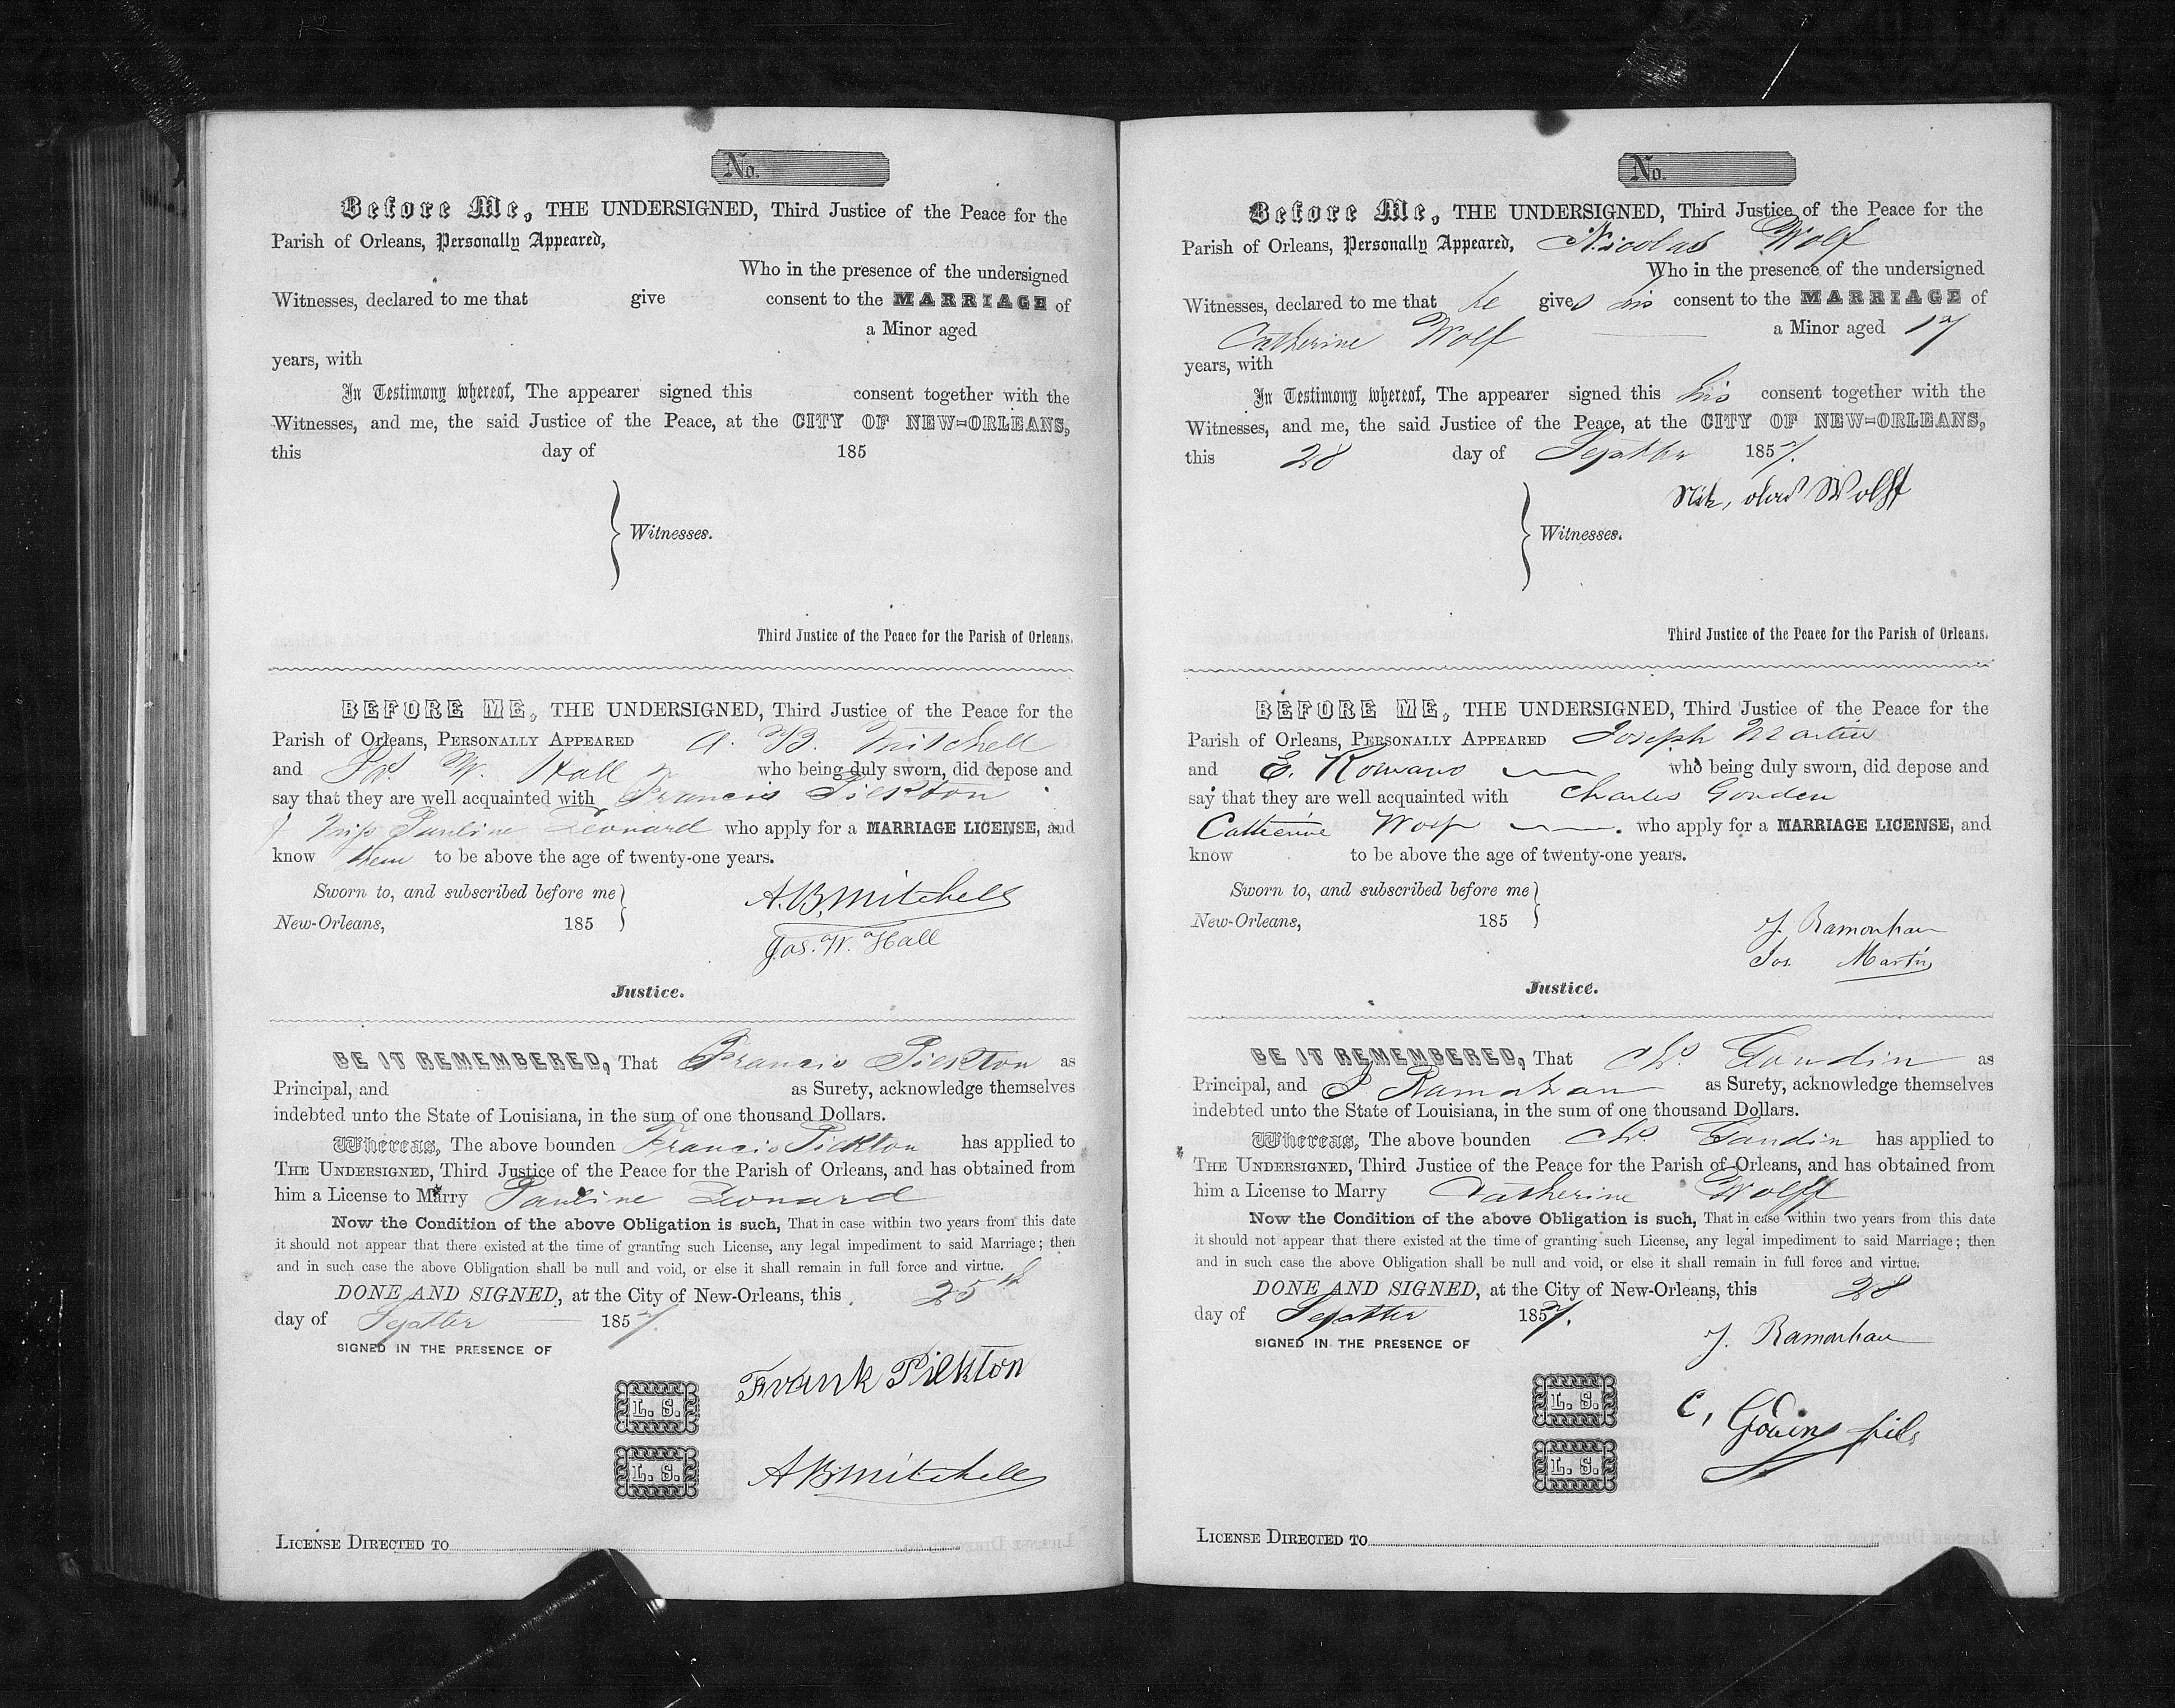 No.
Before Me, THE UNDERSIGNED, Third Justice of the Peace for the
Parish of Orleans, Personally Appeared,
Who in the presence of the undersigned
Witnesses, declared to me that give consent to the MARRIAGE of
a Minor aged
years, with
In Testimony whereof, The appearer signed this consent together with the
Witnesses, and me, the said Justice of the Peace, at the CITY OF NEW-ORLEANS,
this day of 185
Witnesses.
Third Justice of the Peace for the Parish of Orleans.
BEFORE ME, THE UNDERSIGNED, Third Justice of the Peace for the
Parish of Orleans, PERSONALLY APPEARED A. B. Mitchell
and Jas. W. Hall who being duly sworn, did depose and
say that they are well acquainted with Francis Pickton
Miss Pauline Leonard who apply for a MARRIAGE LICENSE, and
know them to be above the age of twenty-one years.
Sworn to, and subscribed before me
New-Orleans, 185
A. B. Mitchell
Jas. W. Hall
Justice.
BE IT REMEMBERED, That Francis Pickton as
Principal, and as Surety, acknowledge themselves
indebted unto the State of Louisiana, in the sum of one thousand Dollars.
Whereas, The above bounden Francis Pickton has applied to
THE UNDERSIGNED, Third Justice of the Peace for the Parish of Orleans, and has obtained from
him a License to Marry Pauline Leonard
Now the Condition of the above Obligation is such, That in case within two years from this date
it should not appear that there existed at the time of granting such License, any legal impediment to said Marriage; then
and in such case the above Obligation shall be null and void, or else it shall remain in full force and virtue.
DONE AND SIGNED, at the City of New-Orleans, this 25th
day of Septber 1857.
SIGNED IN THE PRESENCE OF
Frank Pickton
L. S.
A B Mitchell
L. S.
LICENSE DIRECTED TO
No.
Before Me, THE UNDERSIGNED, Third Justice of the Peace for the
Parish of Orleans, Personally Appeared, Nicolas Wolf
Who in the presence of the undersigned
Witnesses, declared to me that he gives his consent to the MARRIAGE of
Catherine Wolf a Minor aged 17
years, with
In Testimony whereof, The appearer signed this his consent together with the
Witnesses, and me, the said Justice of the Peace, at the CITY OF NEW-ORLEANS,
this 28 day of Septber 1857.
Wolff
Witnesses.
Third Justice of the Peace for the Parish of Orleans.
BEFORE ME, THE UNDERSIGNED, Third Justice of the Peace for the
Parish of Orleans, PERSONALLY APPEARED Joseph Martin
and E. Romano who being duly sworn, did depose and
say that they are well acquainted with Charles Gouden
Catherine Wolf who apply for a MARRIAGE LICENSE, and
know to be above the age of twenty-one years.
Sworn to, and subscribed before me
New-Orleans, 185
J. Ramonhau
Jos. Martin
Justice.
BE IT REMEMBERED, That Chs. Gondin as
Principal, and as Surety, acknowledge themselves
indebted unto the State of Louisiana, in the sum of one thousand Dollars.
Whereas, The above bounden Chs. Gaudin has applied to
THE UNDERSIGNED, Third Justice of the Peace for the Parish of Orleans, and has obtained from
him a License to Marry Catherine Wolff
Now the Condition of the above Obligation is such, That in case within two years from this date
it should not appear that there existed at the time of granting such License, any legal impediment to said Marriage; then
and in such case the above Obligation shall be null and void, or else it shall remain in full force and virtue.
DONE AND SIGNED, at the City of New-Orleans, this 28
day of Septber 1857.
SIGNED IN THE PRESENCE OF
J. Ramonhau
L. S.
C, fils
L. S.
LICENSE DIRECTED TO